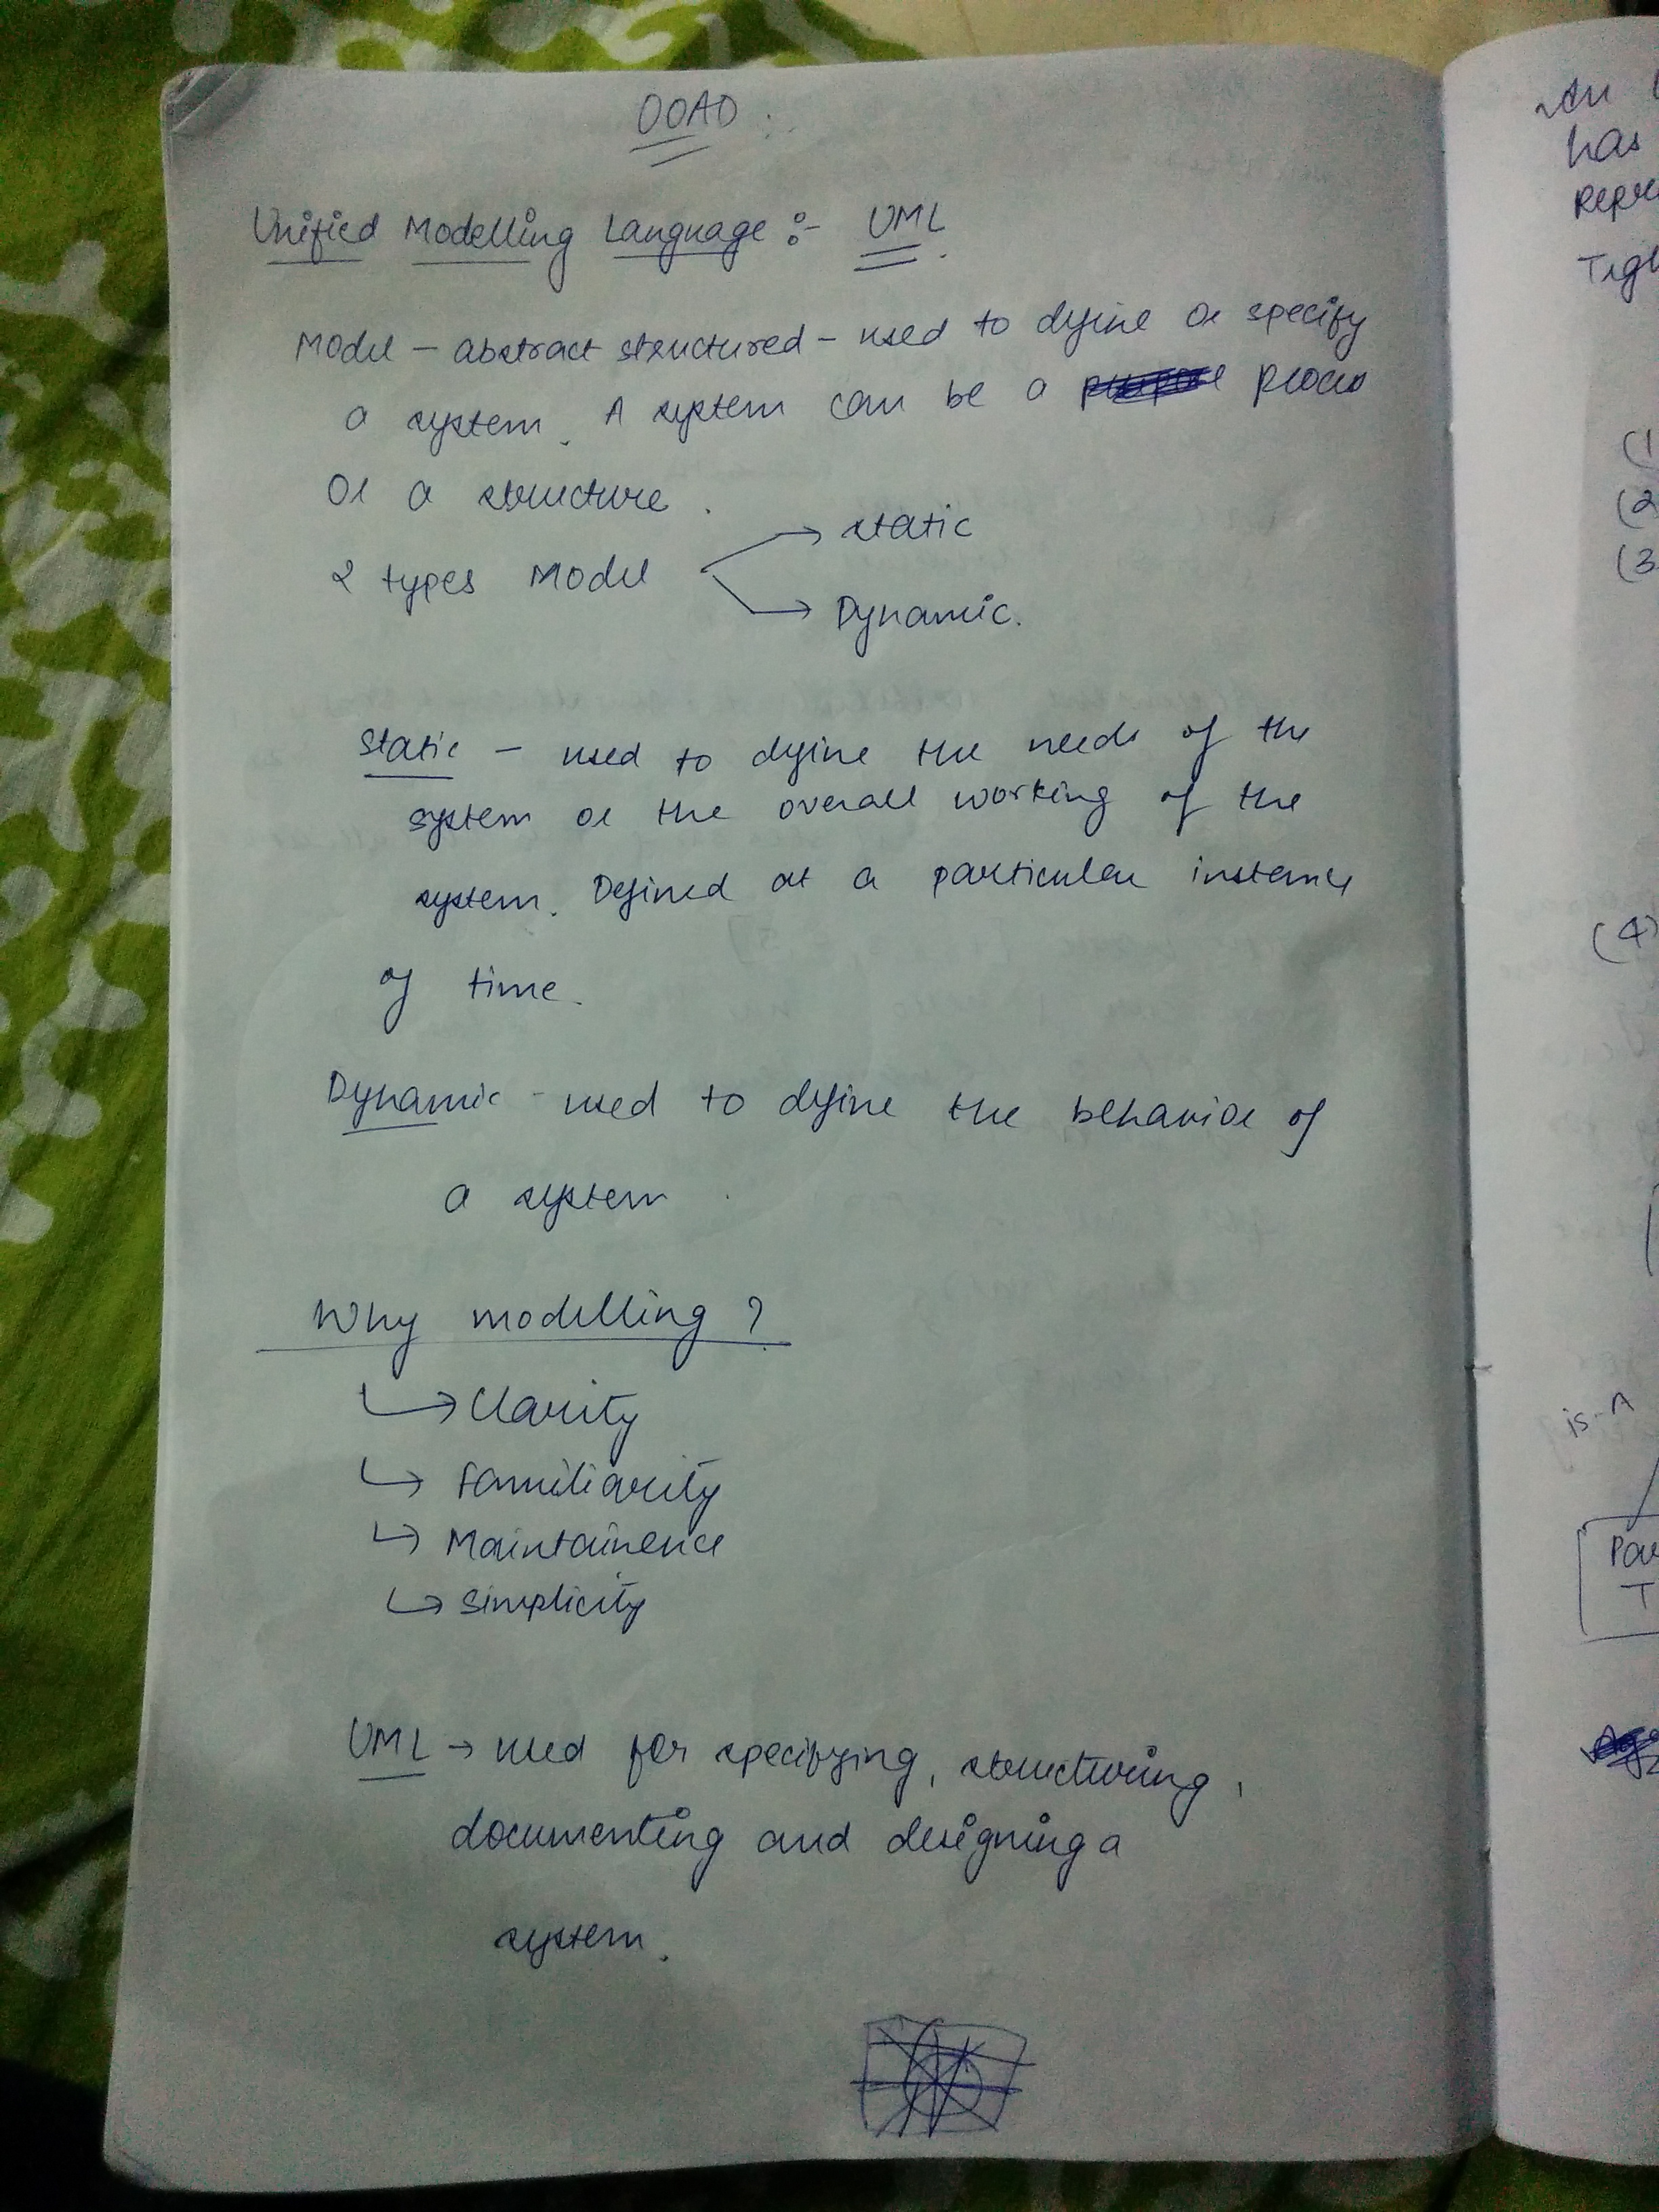 OOAD :
Unified Modelling Language :- UML.
Model - abstract structured - used to define or specify
a system. A system can be a process
or a structure.
2 types Model → static
→ Dynamic.
Static - used to define the needs of the
system or the overall working of the
system. Defined at a particular instance
of time.
Dynamic - used to define the behavior of
a system
Why modelling ?
↳ Clarity
↳ Familiarity
↳ Maintainence
↳ Simplicity
UML → used for specifying, structuring,
documenting and designing a
system.
An
has
(1
(2
(3
(4)
is-A
T